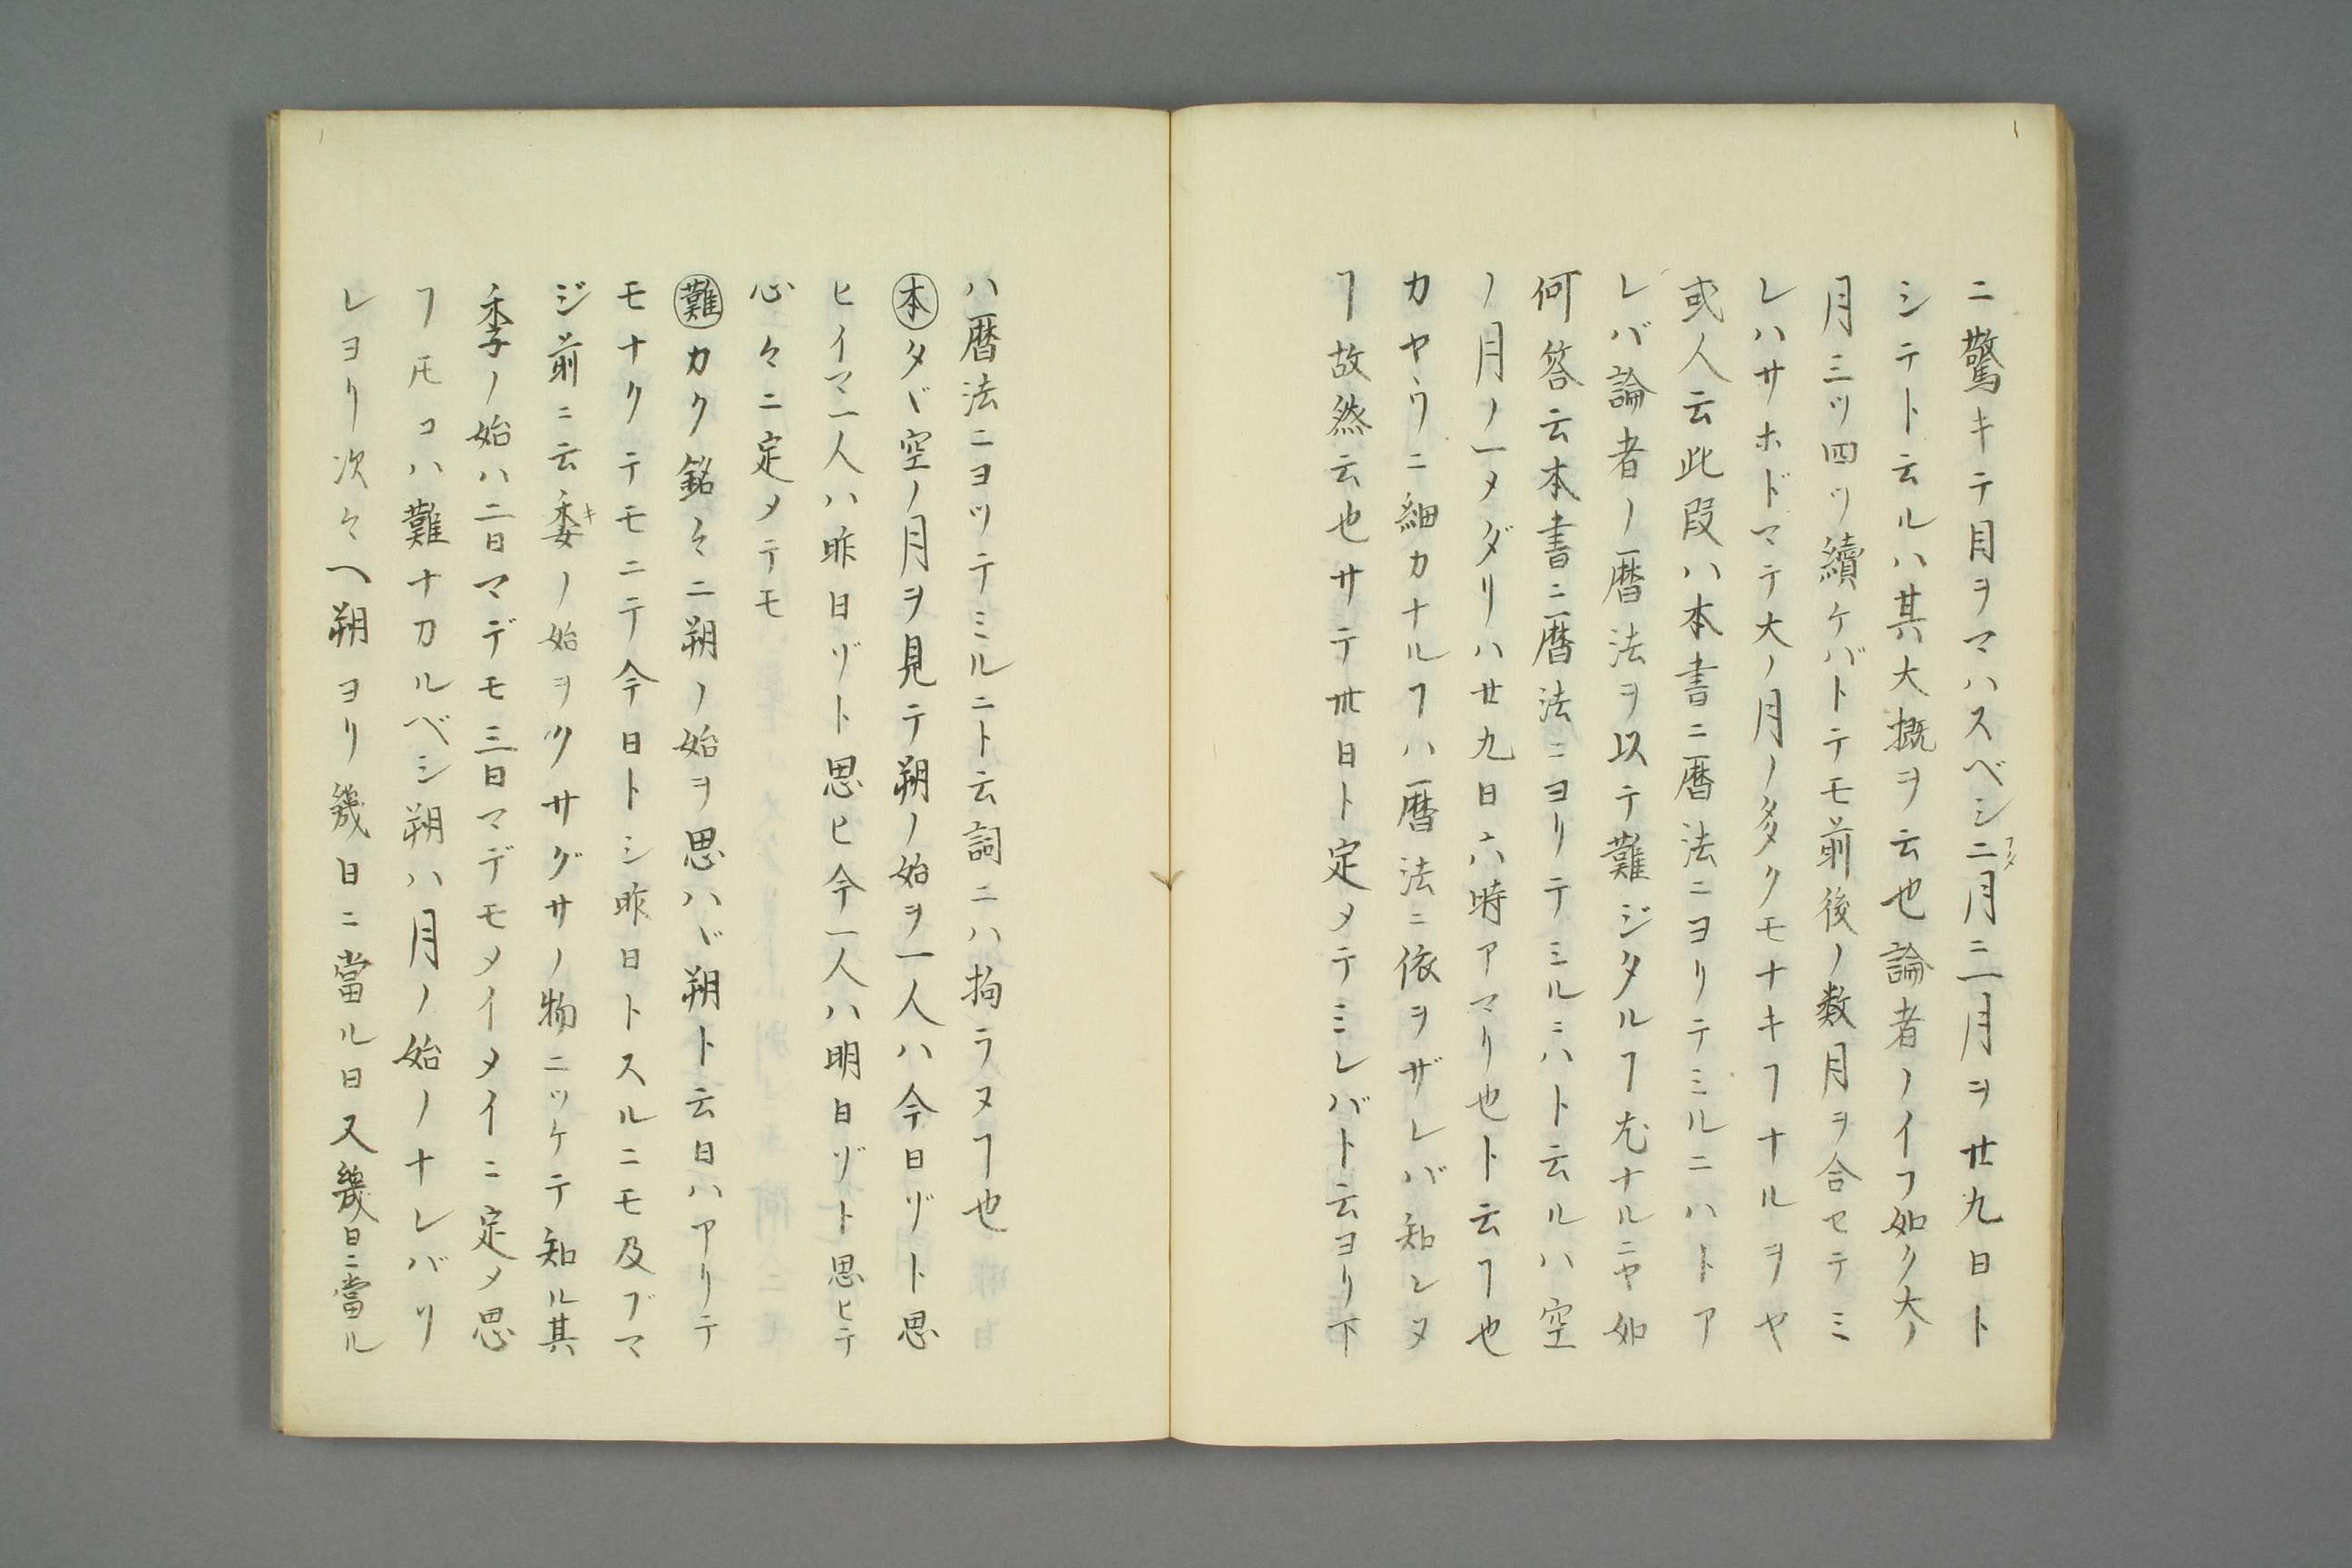 ニ驚キテ目ヲマハスベシ二フタ月三月ヲ廿九日ト
シテト云ルハ其大概ヲ云也論者ノイフ如ク大ノ
月三ツ四ツ續ケバトテモ前後ノ数月ヲ合セテミ
レハサホドマテ大ノ月ノ多クモナキヿナルヲヤ
或人云此段ハ本書ニ暦法ニヨリテミルニハトア
レバ論者ノ暦法ヲ以テ難ジタルヿ尤ナルニヤ如
何答云本書ニ暦法ニヨリテミルニハト云ルハ空
ノ月ノ一メグリハ廿九日六時アマリ也ト云ヿ也
カヤウニ細カナルヿハ暦法ニ依ヲザレバ知レヌ
ヿ故然云也サテ卅日ト定メテミレバト云ヨリ下
ハ暦法ニヨツテミルニト云詞ニハ拘ラヌヿ也
本タヾ空ノ月ヲ見テ朔ノ始ヲ一人ハ今日ゾト思
ヒイマ一人ハ昨日ゾト思ヒ今一人ハ明日ゾト思ヒテ
心々ニ定メテモ
難カク銘々ニ朔ノ始ヲ思ハヾ朔ト云日ハアリテ
モナクテモニテ今日トシ昨日トスルニモ及ブマ
ジ前ニ云季キノ始ヲクサグサノ物ニツケテ知ル其
季ノ始ハ二日マデモ三日マデモメイメイニ定メ思
フ𪜈コハ難ナカルベシ朔ハ月ノ始ノナレバソ
レヨリ次々ヘ朔ヨリ幾日ニ當ル日又幾日ニ當ル